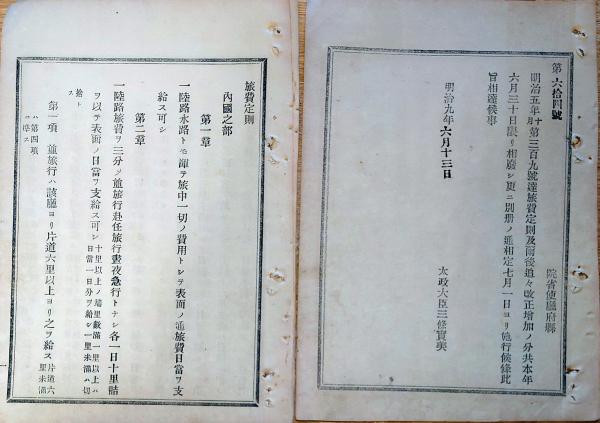 第六拾四號
院省使廳府縣
明治五年十月第三百九號達旅費定則及爾後追々改正增加ノ分共本年
六月三十日限リ相廢シ更ニ別册ノ通相定七月一日ヨリ施行候條此
旨相達候事
明治九年六月十三日
太政大臣三條實美
旅費定則
內國之部
第一章
一陸路水路トモ渾テ旅中一切ノ費用トシテ表面ノ通旅費日當ヲ支
給ス可シ
第二章
一陸路旅費ヲ三分メ並旅行赴任旅行晝夜急行トナシ各一日十里詰
ヲ以テ表面ノ日當ヲ支給ス可シ
十里以上ノ端里數滿一里以上ハ
日當一日分ヲ給シ一里未滿ハ切
捨ト
第一項 並旅行ハ該廳ヨリ片道六里以上ヨリ之ヲ給ス
片道六
里未滿
ハ第四項
ニ準ス